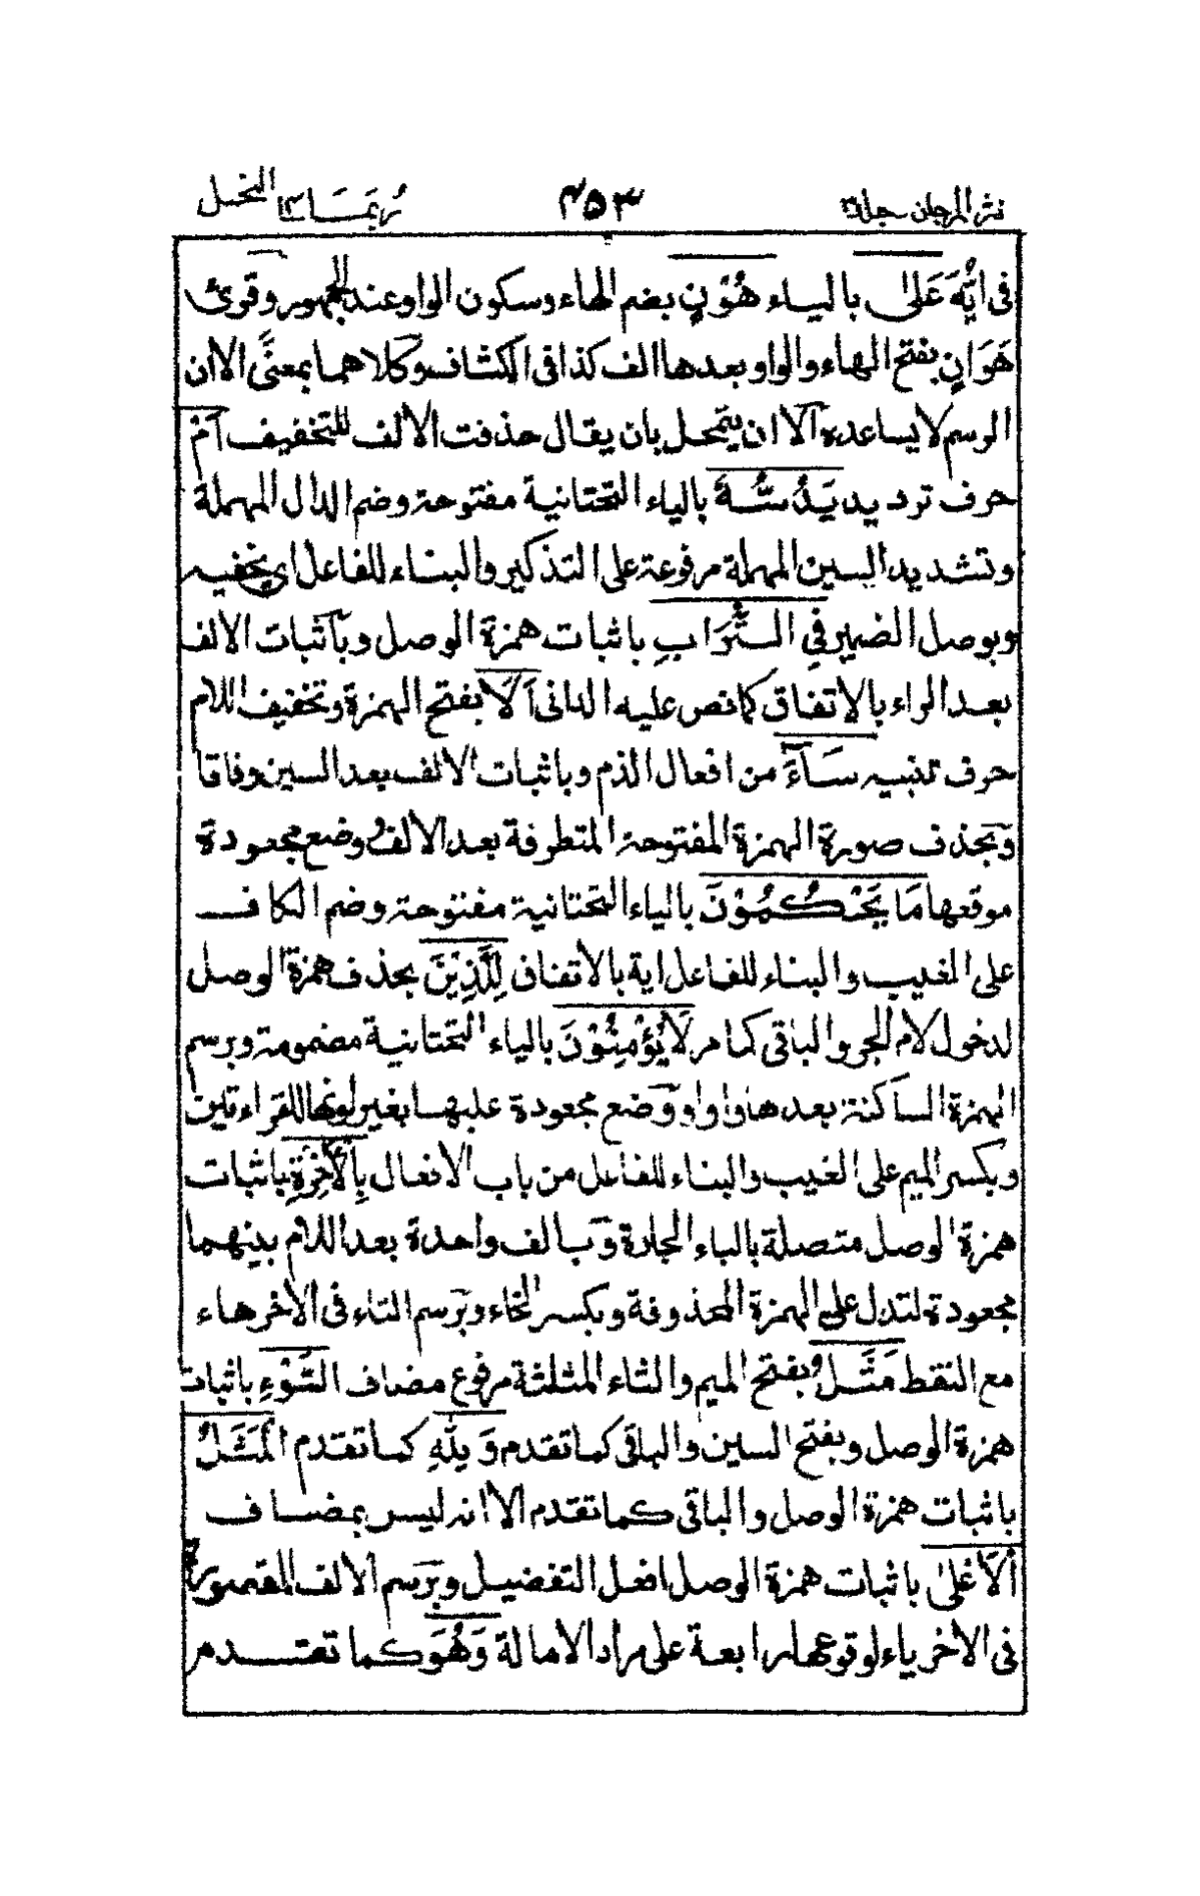 نثر المرجان جلد۳ ۴۵۳ رُبَمَا۱۴ النحل
فى ايّه عَلىٰ بالياء هُوْنٍ بضم الهاء وسكون الواو عند الجمهور وقرئ
هَوَانٍ بفتح الهاء والواو وبعدها الف كذا فى الكشاف وكلاهما بمعنًى الا ان
الرسم لا يساعده الا ان يتمحل بان يقال حذفت الالف للتخفيف اَمْ
حرف ترديد يَدُسُّهٗ بالياء التحتانية مفتوحة وضم الدال المهملة
وتشديد السين المهملة مرفوعة على التذكير والبناء للفاعل اى يخفيه
وبوصل الضمير فِي التُّرَابِ باثبات همزة الوصل وباثبات الالف
بعد الراء بالاتفاق كما نص عليه الدانى اَلَا بفتح الهمزة وتخفيف اللام
حرف تنبيه سَآءَ من افعال الذم وباثبات الالف بعد السين وفاقا
وبحذف صورة الهمزة المفتوحة المتطرفة بعد الالف ووضع مجعودة
موقعها مَا يَحْكُمُوْنَ بالياء التحتانية مفتوحة وضم الكاف
على الغيب والبناء للفاعل اية بالاتفاق لِلَّذِيْنَ بحذف همزة الوصل
لدخول لام الجر والباقى كما مر لَا يُؤْمِنُوْنَ بالياء التحتانية مضمومة وبرسم
الهمزة الساكنة بعدها واوا ووضع مجعودة عليها بغير لونها للقراءتين
وبكسر الميم على الغيب والبناء للفاعل من باب الافعال بِالْاٰخِرَةِ باثبات
همزة الوصل متصلة بالباء الجارة وبالف واحدة بعد اللام بينهما
مجعودة لتدل على الهمزة المحذوفة وبكسر الخاء وبرسم التاء فى الاخر هاء
مع النقط مَثَلُ بفتح الميم والثاء المثلثة مرفوع مضاف السَّوْءِ باثبات
همزة الوصل وبفتح السين والباقى كما تقدم وَلِلّٰهِ كما تقدم الْمَثَلُ
باثبات همزة الوصل والباقى كما تقدم الا انه ليس بمضاف
الْاَعْلٰى باثبات همزة الوصل افعل التفضيل وبرسم الالف المقصورة
فى الاخر ياء لوقوعها رابعة على مراد الامالة وَهُوَ كما تقدم